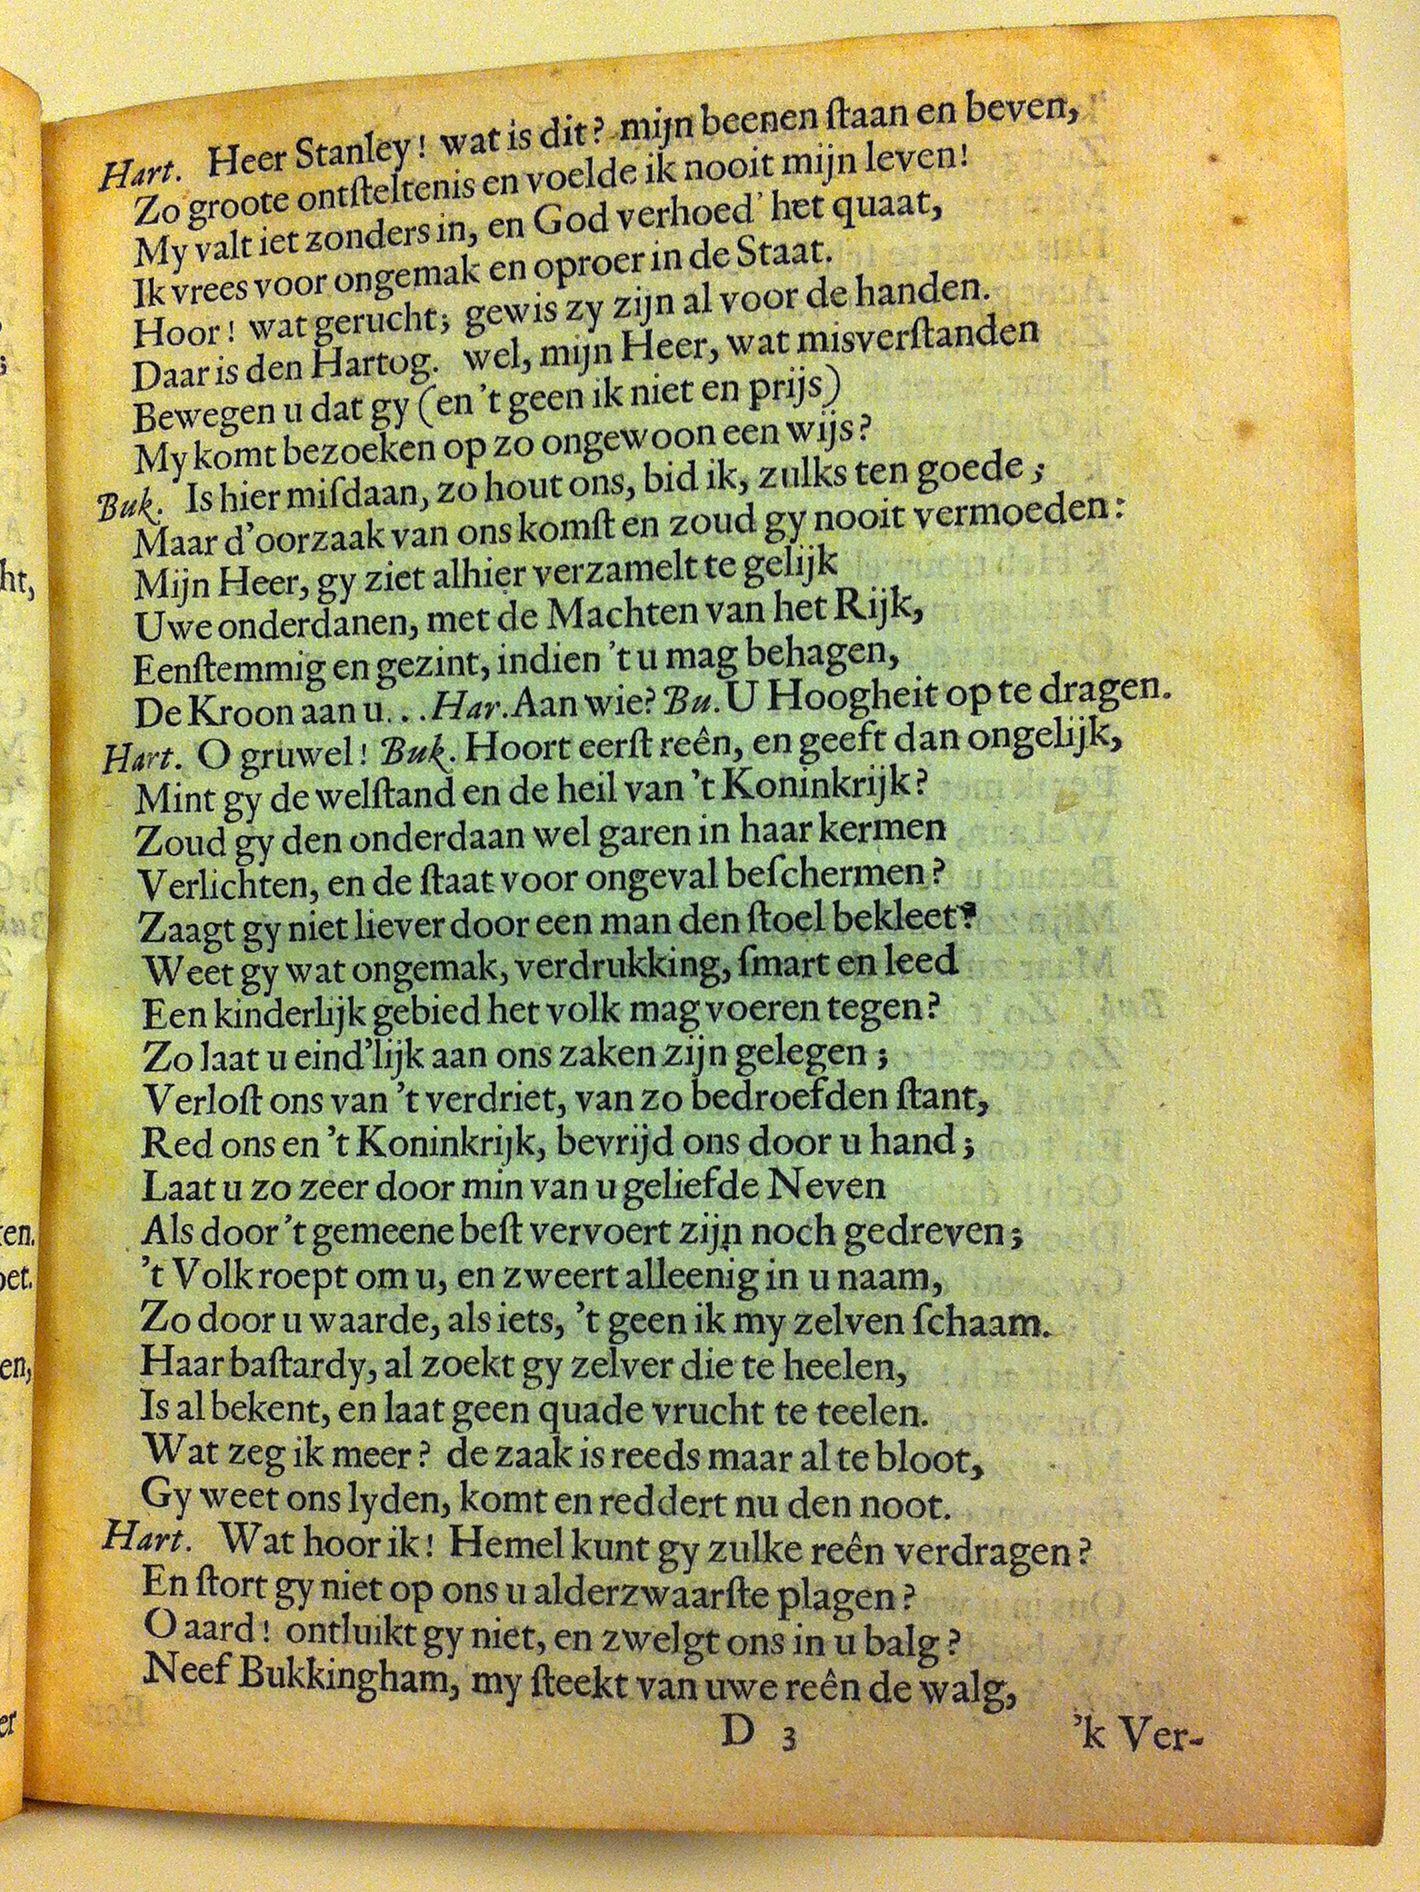 Hart. Heer Stanley! wat is dit? mijn beenen ſtaan en beven,
Zo groote ontſteltenis en voelde ik nooit mijn leven!
My valt iet zonders in, en God verhoed' het quaat,
Ik vrees voor ongemak en oproer in de Staat.
Hoor! wat gerucht; gewis zy zijn al voor de handen.
Daar is den Hartog. wel, mijn Heer, wat misverſtanden
Bewegen u dat gy (en 't geen ik niet en prijs)
My komt bezoeken op zo ongewoon een wijs?
Buk. Is hier miſdaan, zo hout ons, bid ik, zulks ten goede;
Maar d'oorzaak van ons komſt en zoud gy nooit vermoeden:
Mijn Heer, gy ziet alhier verzamelt te gelijk
Uwe onderdanen, met de Machten van het Rijk,
Eenſtemmig en gezint, indien 't u mag behagen,
De Kroon aan u... Har. Aan wie? Bu. U Hoogheit op te dragen.
Hart. O gruwel! Buk. Hoort eerſt reên, en geeft dan ongelijk,
Mint gy de welſtand en de heil van 't Koninkrijk?
Zoud gy den onderdaan wel garen in haar kermen
Verlichten, en de ſtaat voor ongeval beſchermen?
Zaagt gy niet liever door een man den ſtoel bekleet?
Weet gy wat ongemak, verdrukking, ſmart en leed
Een kinderlijk gebied het volk mag voeren tegen?
Zo laat u eind'lijk aan ons zaken zijn gelegen;
Verloſt ons van 't verdriet, van zo bedroefden ſtant,
Red ons en 't Koninkrijk, bevrijd ons door u hand;
Laat u zo zeer door min van u geliefde Neven
Als door 't gemeene beſt vervoert zijn noch gedreven;
't Volk roept om u, en zweert alleenig in u naam,
Zo door u waarde, als iets, 't geen ik my zelven ſchaam.
Haar baſtardy, al zoekt gy zelver die te heelen,
Is al bekent, en laat geen quade vrucht te teelen.
Wat zeg ik meer? de zaak is reeds maar al te bloot,
Gy weet ons lyden, komt en reddert nu den noot.
Hart. Wat hoor ik! Hemel kunt gy zulke reên verdragen?
En ſtort gy niet op ons u alderzwaarſte plagen?
O aard! ontluikt gy niet, en zwelgt ons in u balg?
Neef Bukkingham, my ſteekt van uwe reên de walg,
D 3 'k Ver-